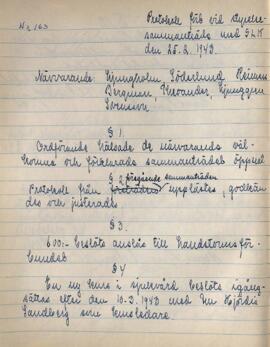 Nr 163
Protokoll förd vid styrelse-
sammanträde med S.L.K
den 25.2. 1943.
Närvarande: Ljungholm, Söderlund, Heiman
Bergman, Alexander, Ljunggren
Svensson
§ 1.
Ordförande hälsade de närvarande väl-
komna och förklarade sammanträdet öppnat
§ 2.
föregående sammanträden
Protokoll från upplästes, godkän-
des och justerades
§ 3.
600:- beslöts anslås till Landstormsför-
bundet
§ 4
En ny kurs i sjukvård beslöts igång-
sättas efter den 10.3. 1943 med fru Hjördis
Sandberg som kursledare.